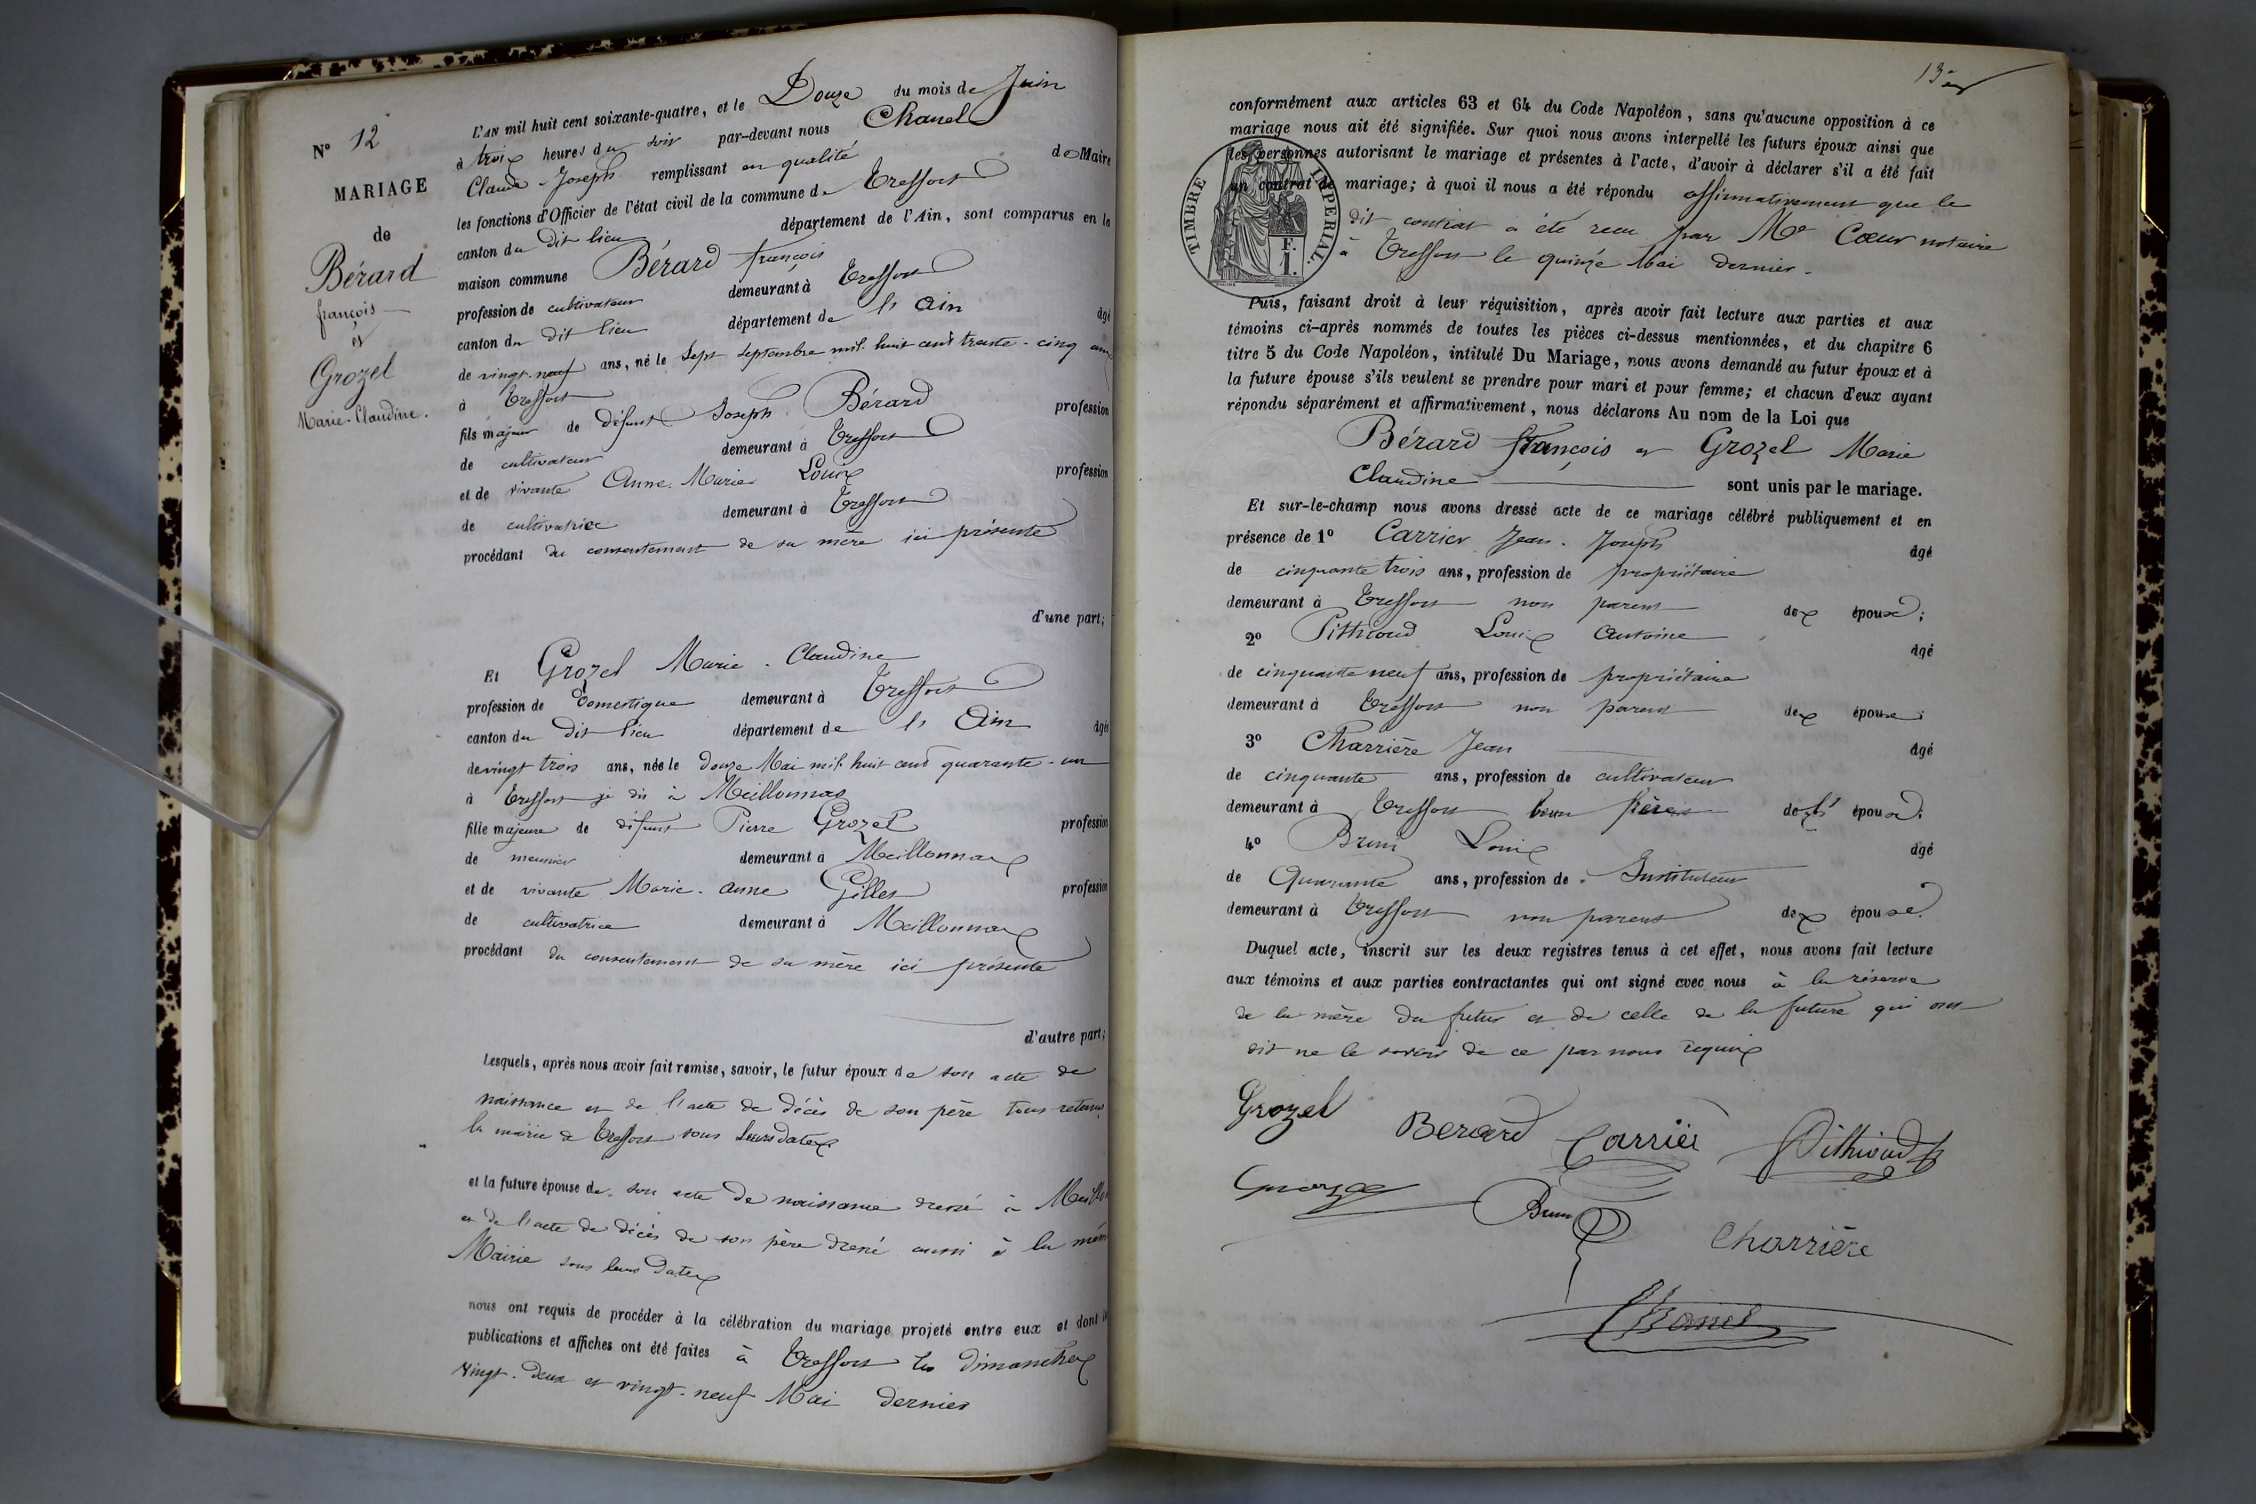 N° 12
MARIAGE
de
Bérard
françois
et
Grozel
Marie-Claudine.
L'AN mil huit cent soixante-quatre, et le Douze du mois de Juin
à trois heures du soir par-devant nous Chanel
Claude-Joseph remplissant en qualité de Maire
les fonctions d'Officier de l'état civil de la commune de Treffort
canton du dit lieu département de l'Ain, sont comparus en la
maison commune Bérard françois
profession de cultivateur demeurant à Treffort
canton du dit lieu département de l' Ain âgé
de vingt-neuf ans, né le sept septembre mil huit cent trente-cinq
à Treffort
fils majeur de défunt Joseph Bérard profession
de cultivateur demeurant à Treffort
et de vivante Anne-Marie Louix profession
de cultivatrice demeurant à Treffort
procédant du consentement de sa mère ici présente
d'une part;
Et Grozel Marie-Claudine
profession de domestique demeurant à Treffort
canton du dit lieu département de l' Ain âgée
de vingt trois ans, née le douze Mai mil huit cent quarante-un
à Treffort je dis à Meillonnas
fille majeure de défunt Pierre Grozel profession
de meunier demeurant à Meillonnax
et de vivante Marie-anne Gilles profession
de cultivatrice demeurant à Meillonnax
procédant du consentement de sa mère ici présente
d'autre part;
Lesquels, après nous avoir fait remise, savoir, le futur époux de son acte de
naissance et de l'acte de décès de son père tous
la mairie de Treffort sous leurs datex
et la future épouse de son acte de naissance dressé à
et de l'acte de décès de son père dressé aussi à la
Mairie sous leurs datex
nous ont requis de procéder à la célébration du mariage projeté entre eux et dont
publications et affiches ont été faites à Treffort les dimanchex
vingt-deux et vingt-neuf Mai dernier
13
conformément aux articles 63 et 64 du Code Napoléon, sans qu'aucune opposition à ce
mariage nous ait été signifiée. Sur quoi nous avons interpellé les futurs époux ainsi que
les personnes autorisant le mariage et présentes à l'acte, d'avoir à déclarer s'il a été fait
un contrat de mariage; à quoi il nous a été répondu affirmativement que le
dit contrat a été recu par Me Cœur notaire
à Treffort le quinze Mai dernier.
TIMBRE IMPERIAL.
F.
1.
Puis, faisant droit à leur réquisition, après avoir fait lecture aux parties et aux
témoins ci-après nommés de toutes les pièces ci-dessus mentionnées, et du chapitre 6
titre 5 du Code Napoléon, intitulé Du Mariage, nous avons demandé au futur époux et à
la future épouse s'ils veulent se prendre pour mari et pour femme; et chacun d'eux ayant
répondu séparément et affirmativement, nous déclarons Au nom de la Loi que
Bérard françois et Grozel Marie
Claudine sont unis par le mariage.
Et sur-le-champ nous avons dressé acte de ce mariage célébré publiquement et en
présence de 1° Carrier Jean-Joseph âgé
de cinquante trois ans, profession de propriétaire
demeurant à Treffort non parent dex époux;
2° Pithioud Louix Antoine âgé
de cinquante neuf ans, profession de propriétaire
demeurant à Treffort non parent dex époux;
3° Charrière Jean âgé
de cinquante ans, profession de cultivateur
demeurant à Treffort beau père de l' époux;
4° Brun Louix âgé
de Quarante ans, profession de Instituteur
demeurant à Treffort non parent dex époux.
Duquel acte, inscrit sur les deux registres tenus à cet effet, nous avons fait lecture
aux témoins et aux parties contractantes qui ont signé avec nous à la réserve
de la mère du futur et de celle de la future qui ont
dit ne le savoir de ce par nous requix
Grozel
Berard
Carrier
Pithioud
Brun
Charrière
Chanel